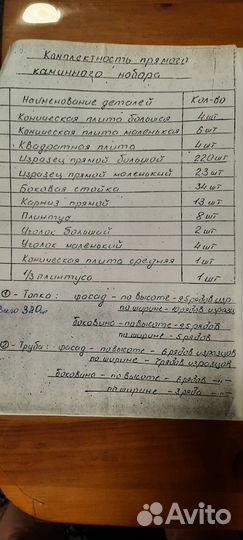 Комплектность прямого
каминного набора
Наименование деталей Кол-во
Коническая плита большая 4 шт
Коническая плита маленькая 6 шт
Квадратная плита 4 шт
Изразец прямой большой 220 шт
Изразец прямой маленький 23 шт
Боковая стойка 34 шт
Карниз прямой 13 шт
Плинтуа 8 шт
Уголок большой 2 шт
Уголок маленький 4 шт
Коническая плита средняя 1 шт
1/3 плинтуса 1 шт
① - Топка: фасад - по высоте - 9,5 рядов изр.
по ширине - 10 рядов изразц
320
боковина - по высоте - 9,5 рядов
по ширине - 5 рядов
② - Труба: фасад - по высоте - 6 рядов изразцов
по ширине - 7 рядов изразцов
боковина - по высоте - 6 рядов -"-
по ширине - 3 ряда -"-
Avito